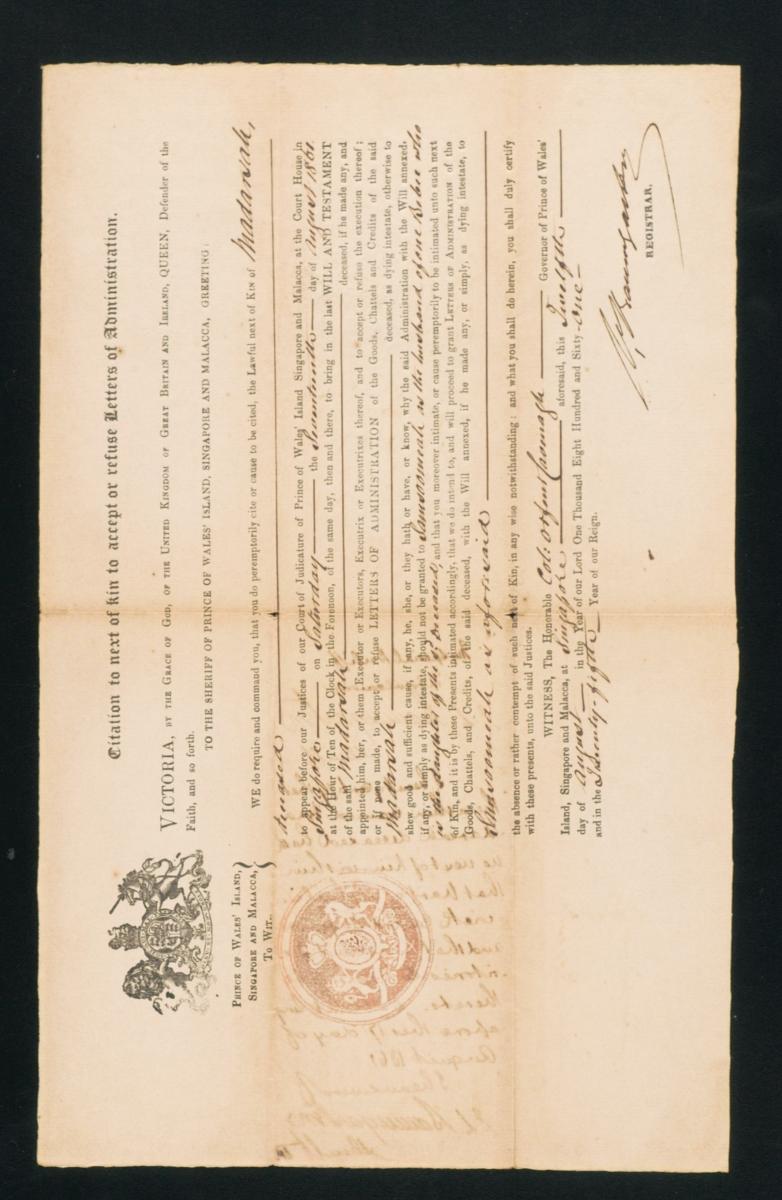 Citation to next of kin to accept or refuse Letters of Administration.
PRINCE OF WALES' ISLAND,
SINGAPORE AND MALACCA,
TO WIT.
VICTORIA, BY THE GRACE OF GOD, OF THE UNITED KINGDOM OF GREAT BRITAIN AND IRELAND, QUEEN, Defender of the
Faith, and so forth.
TO THE SHERIFF OF PRINCE OF WALES' ISLAND, SINGAPORE AND MALACCA, GREETING:
WE do require and command you, that you do peremptorily cite or cause to be cited, the Lawful next of KIN of Madarsah,
deceased
to appear before our Justices of our Court of Judicature of Prince of Wales' Island Singapore and Malacca, at the Court House in
Singapore on Saturday the Seventeenth day of August 1861
at the Hour of Ten of the Clock in the Forenoon, of the same day, then and there, to bring in the last WILL AND TESTAMENT
of the said Madarsah deceased, if he made any, and
appointed him, her, or them Executor or Executors, Executrix or Executrixes thereof, and to accept or refuse the execution thereof;
or if none made, to accept or refuse LETTERS OF ADMINISTRATION of the Goods, Chattels and Credits of the said
Madarsah deceased, as dying intestate, otherwise to
shew good and sufficient cause, if any, he, she, or they hath or have, or know, why the said Administration with the Will annexed.
if any, or simply as dying intestate, should not be granted to as the husband of one who
is the daughter of the deceased, and that you moreover intimate, or cause peremptorily to be intimated unto such next
of Kin, and it is by these Presents intimated accordingly, that we do intend to, and will proceed to grant LETTERS OF ADMINISTRATION of the
Goods, Chattels, and Credits, of the said deceased, with the Will annexed, if he made any, or simply, as dying intestate, to
as aforesaid
the absence or rather contempt of such next of Kin, in any wise notwithstanding; and what you shall do herein, you shall duly certify
with these presents, unto the said Justices.
WITNESS, The Honorable Col: Orfeur Cavenagh Governor of Prince of Wales'
Island, Singapore and Malacca, at Singapore aforesaid, this Twelfth
day of August in the Year of our Lord One Thousand Eight Hundred and Sixty-One-
and in the Twenty-fifth Year of our Reign.
REGISTRAR.